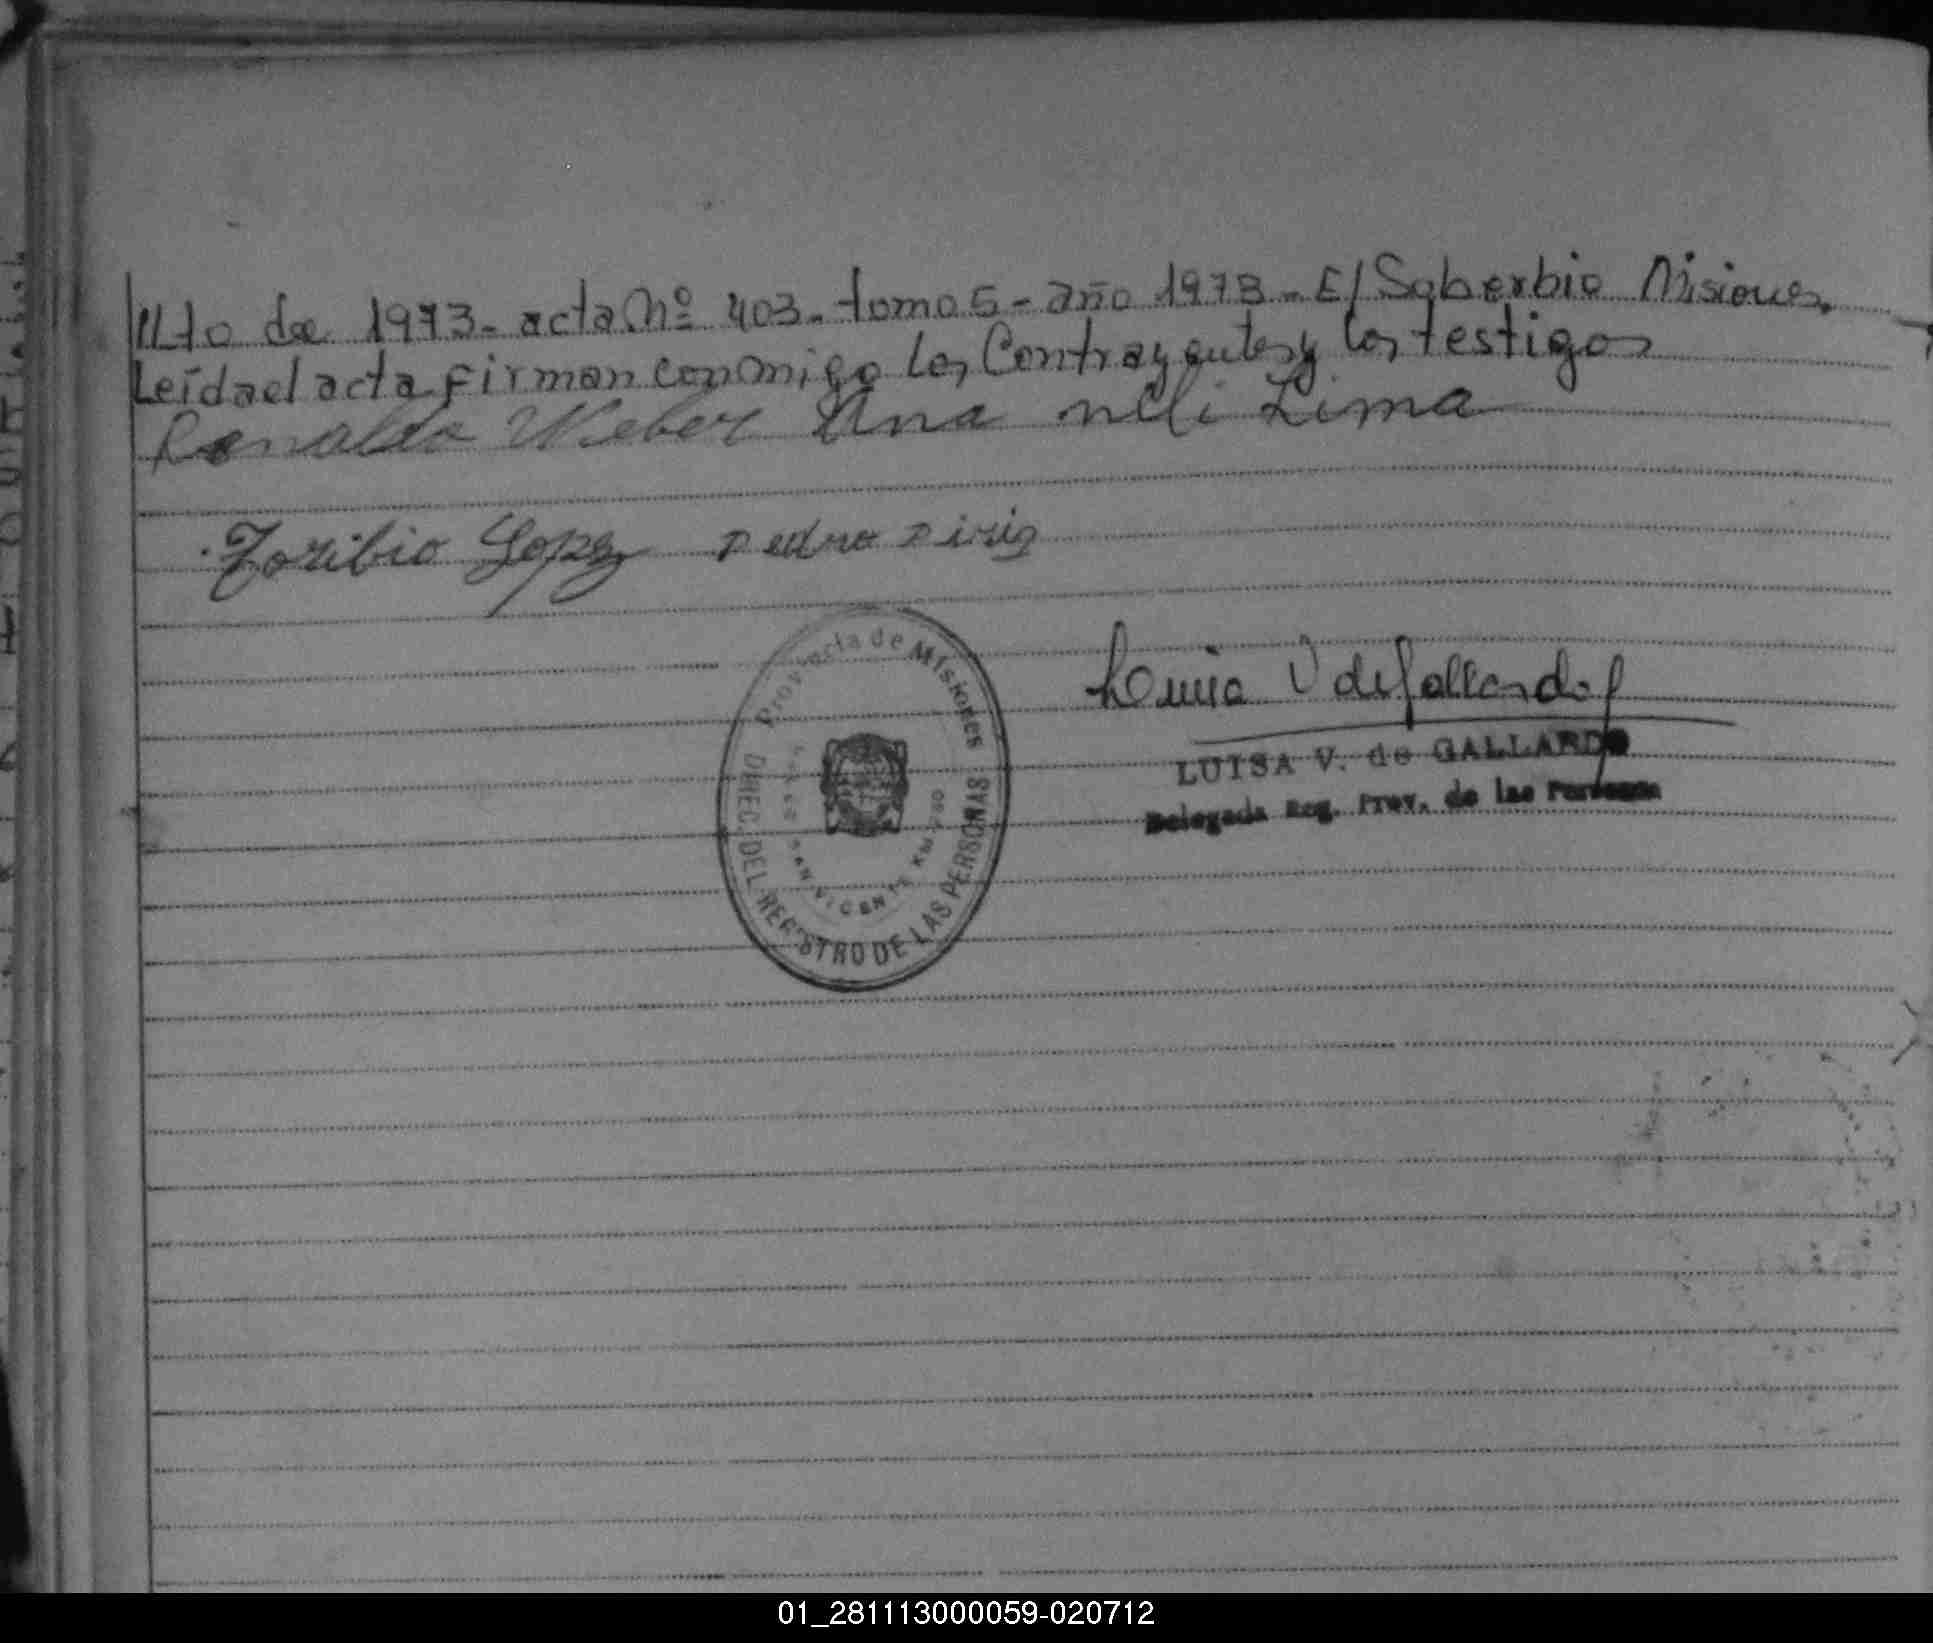 to de 1973- acta Nº 403- tomo 5- año 1973- El Soberbio Misiones,
Leída el acta firman conmigo los Contrayentes y los testigos
Ronaldo Weber Ana neli Lima
Toribio Lopez Pedro
Provincia de Misiones
DIREC. DEL REGISTRO DE LAS PERSONAS
SAN VICENTE KM
Luisa V de Gallardo
LUISA V. de GALLARDO
Delegada Reg. Prov. de las Personas
01_281113000059-020712